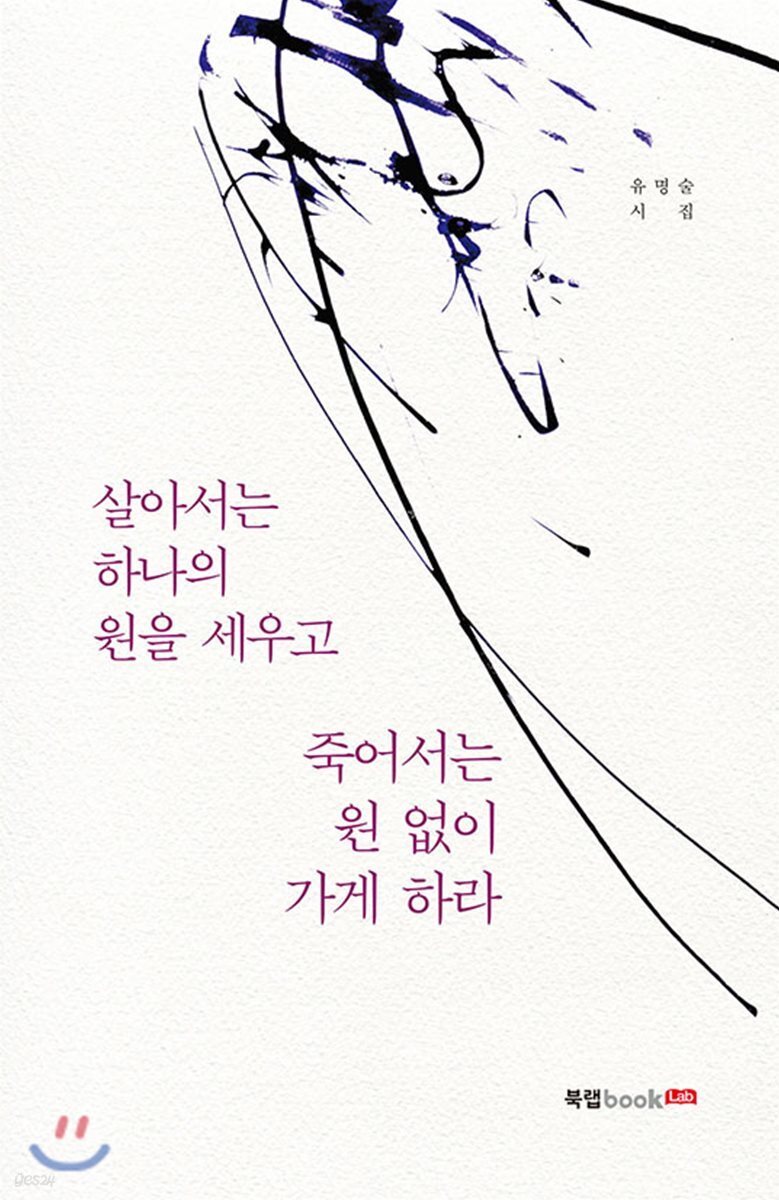 유명술
시 집
살아서는
하나의
원을 세우고
죽어서는
원 없이
가게 하라
북랩book Lab
yes24